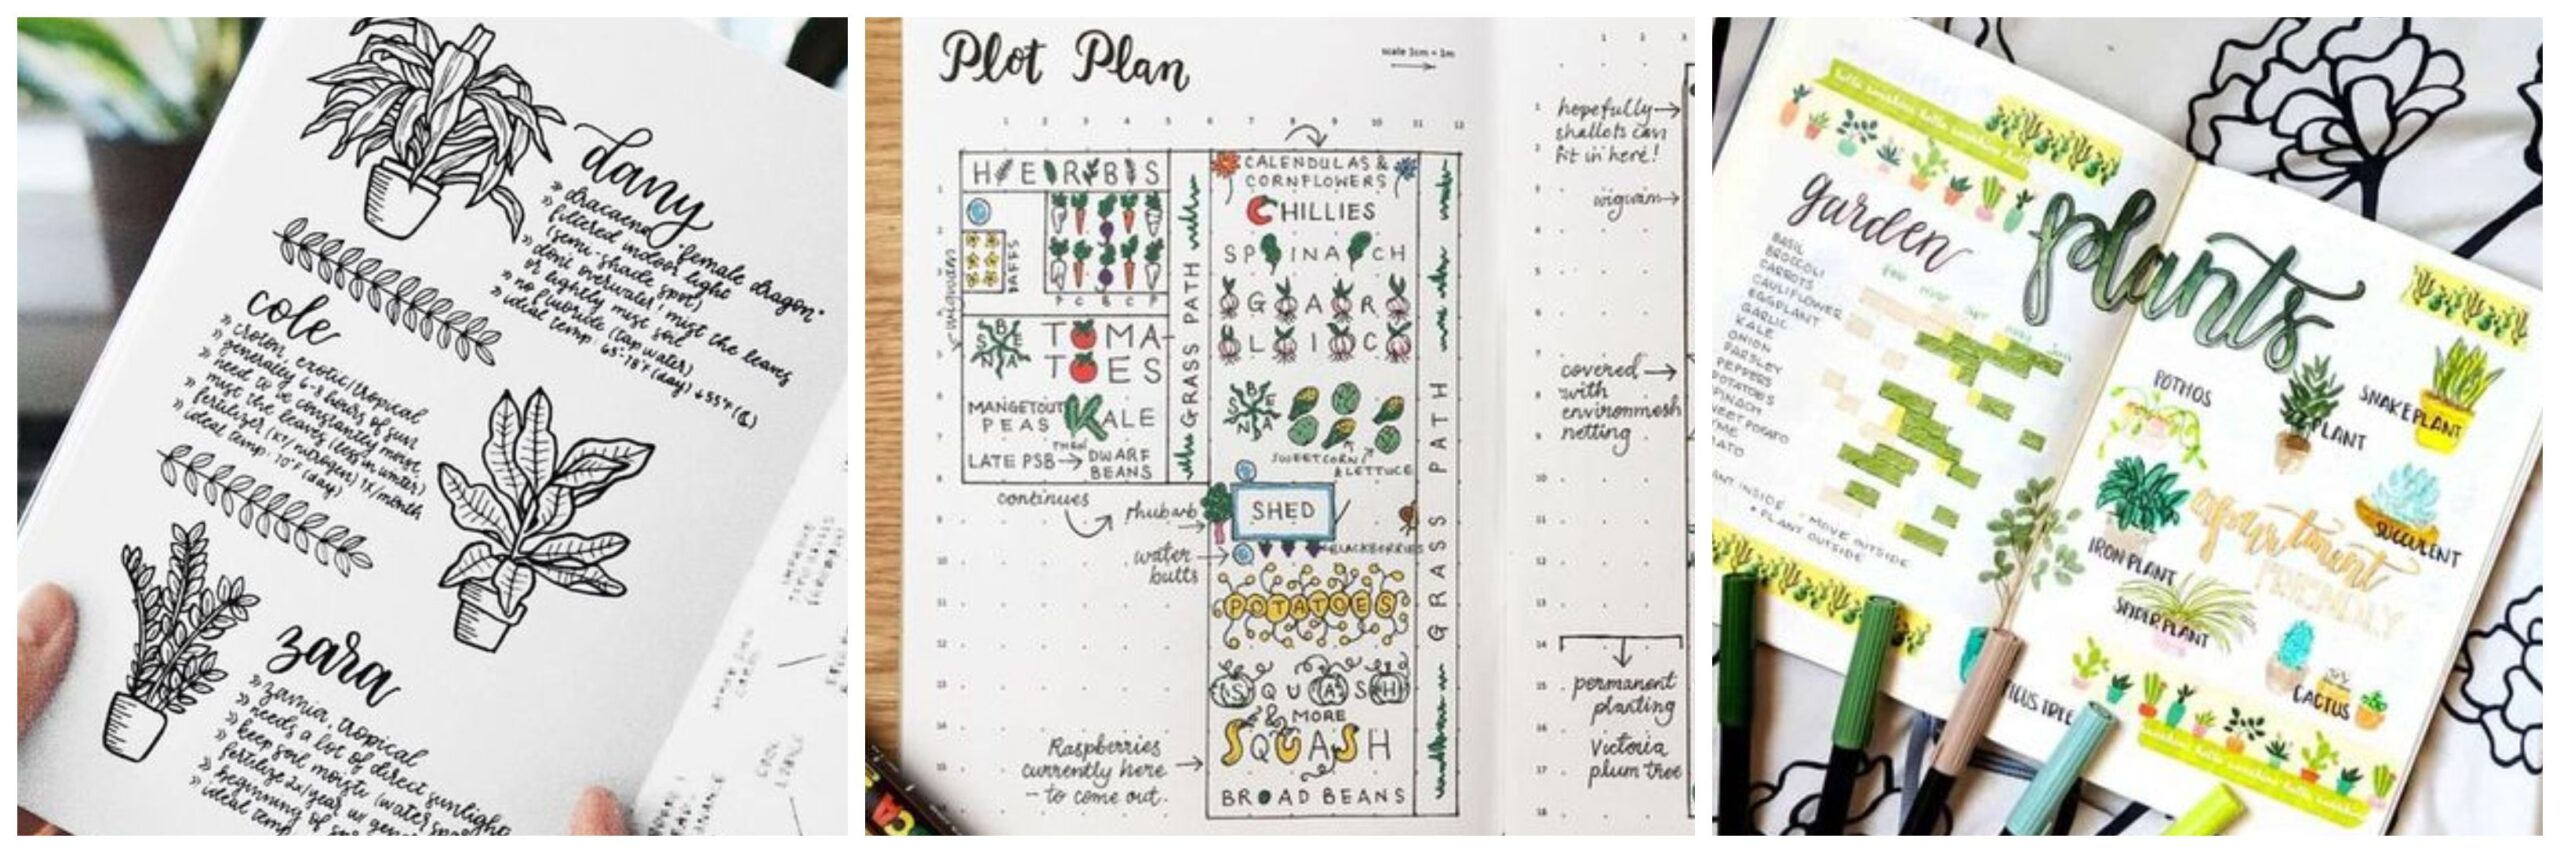 dany
» dracaena "female dragon"
» filtered indoor light
(semi-shade spot)
» dont overwater, mist the leaves
or lightly mist soil
» no fluoride (tap water)
» ideal temp: 65-78°F (day) ↓55°F
cole
» croton, exotic/tropical
» generally 6-8 hours of sun
» need to be constantly moist
» mist the leaves (less in winter)
» fertilizer (K+/nitrogen) 1x/month
» ideal temp: 70°F (day)
zara
» zamia, tropical
» needs a lot of direct sunlight
» keep soil moist (water
fertilize 2x/year w/
beginning of
» ideal temp
Plot Plan
scale 1cm = 1m
1 2 3 4 5 6 7 8 9 10 11 12
HERBS
DAFFS
P C B C P
wigwams
BEANS
TOMA-
TOES
MANGETOUT
PEAS
KALE
LATE PSB
THEN
DWARF
BEANS
GRASS PATH
CALENDULAS &
CORNFLOWERS
CHILLIES
SPINACH
GAR
LIC
BEANS
SWEETCORN
& LETTUCE
continues
rhubarb
SHED
water
butts
BLACKBERRIES
POTATOES
SQUASH
& MORE
SQUASH
Raspberries
currently here
- to come out.
BROAD BEANS
GRASS PATH
hopefully
shallots can
fit in here!
wigwam
covered
with
environmesh
netting
permanent
planting
Victoria
plum tree
garden
plants
BASIL
BROCCOLI
CARROTS
CAULIFLOWER
EGGPLANT
GARLIC
KALE
ONION
PARSLEY
PEPPERS
POTATOES
SPINACH
SWEET POTATO
MOVE OUTSIDE
• PLANT OUTSIDE
POTHOS
PLANT
SNAKE PLANT
IRON PLANT
apartment
FRIENDLY
SUCCULENT
SPIDER PLANT
CACTUS